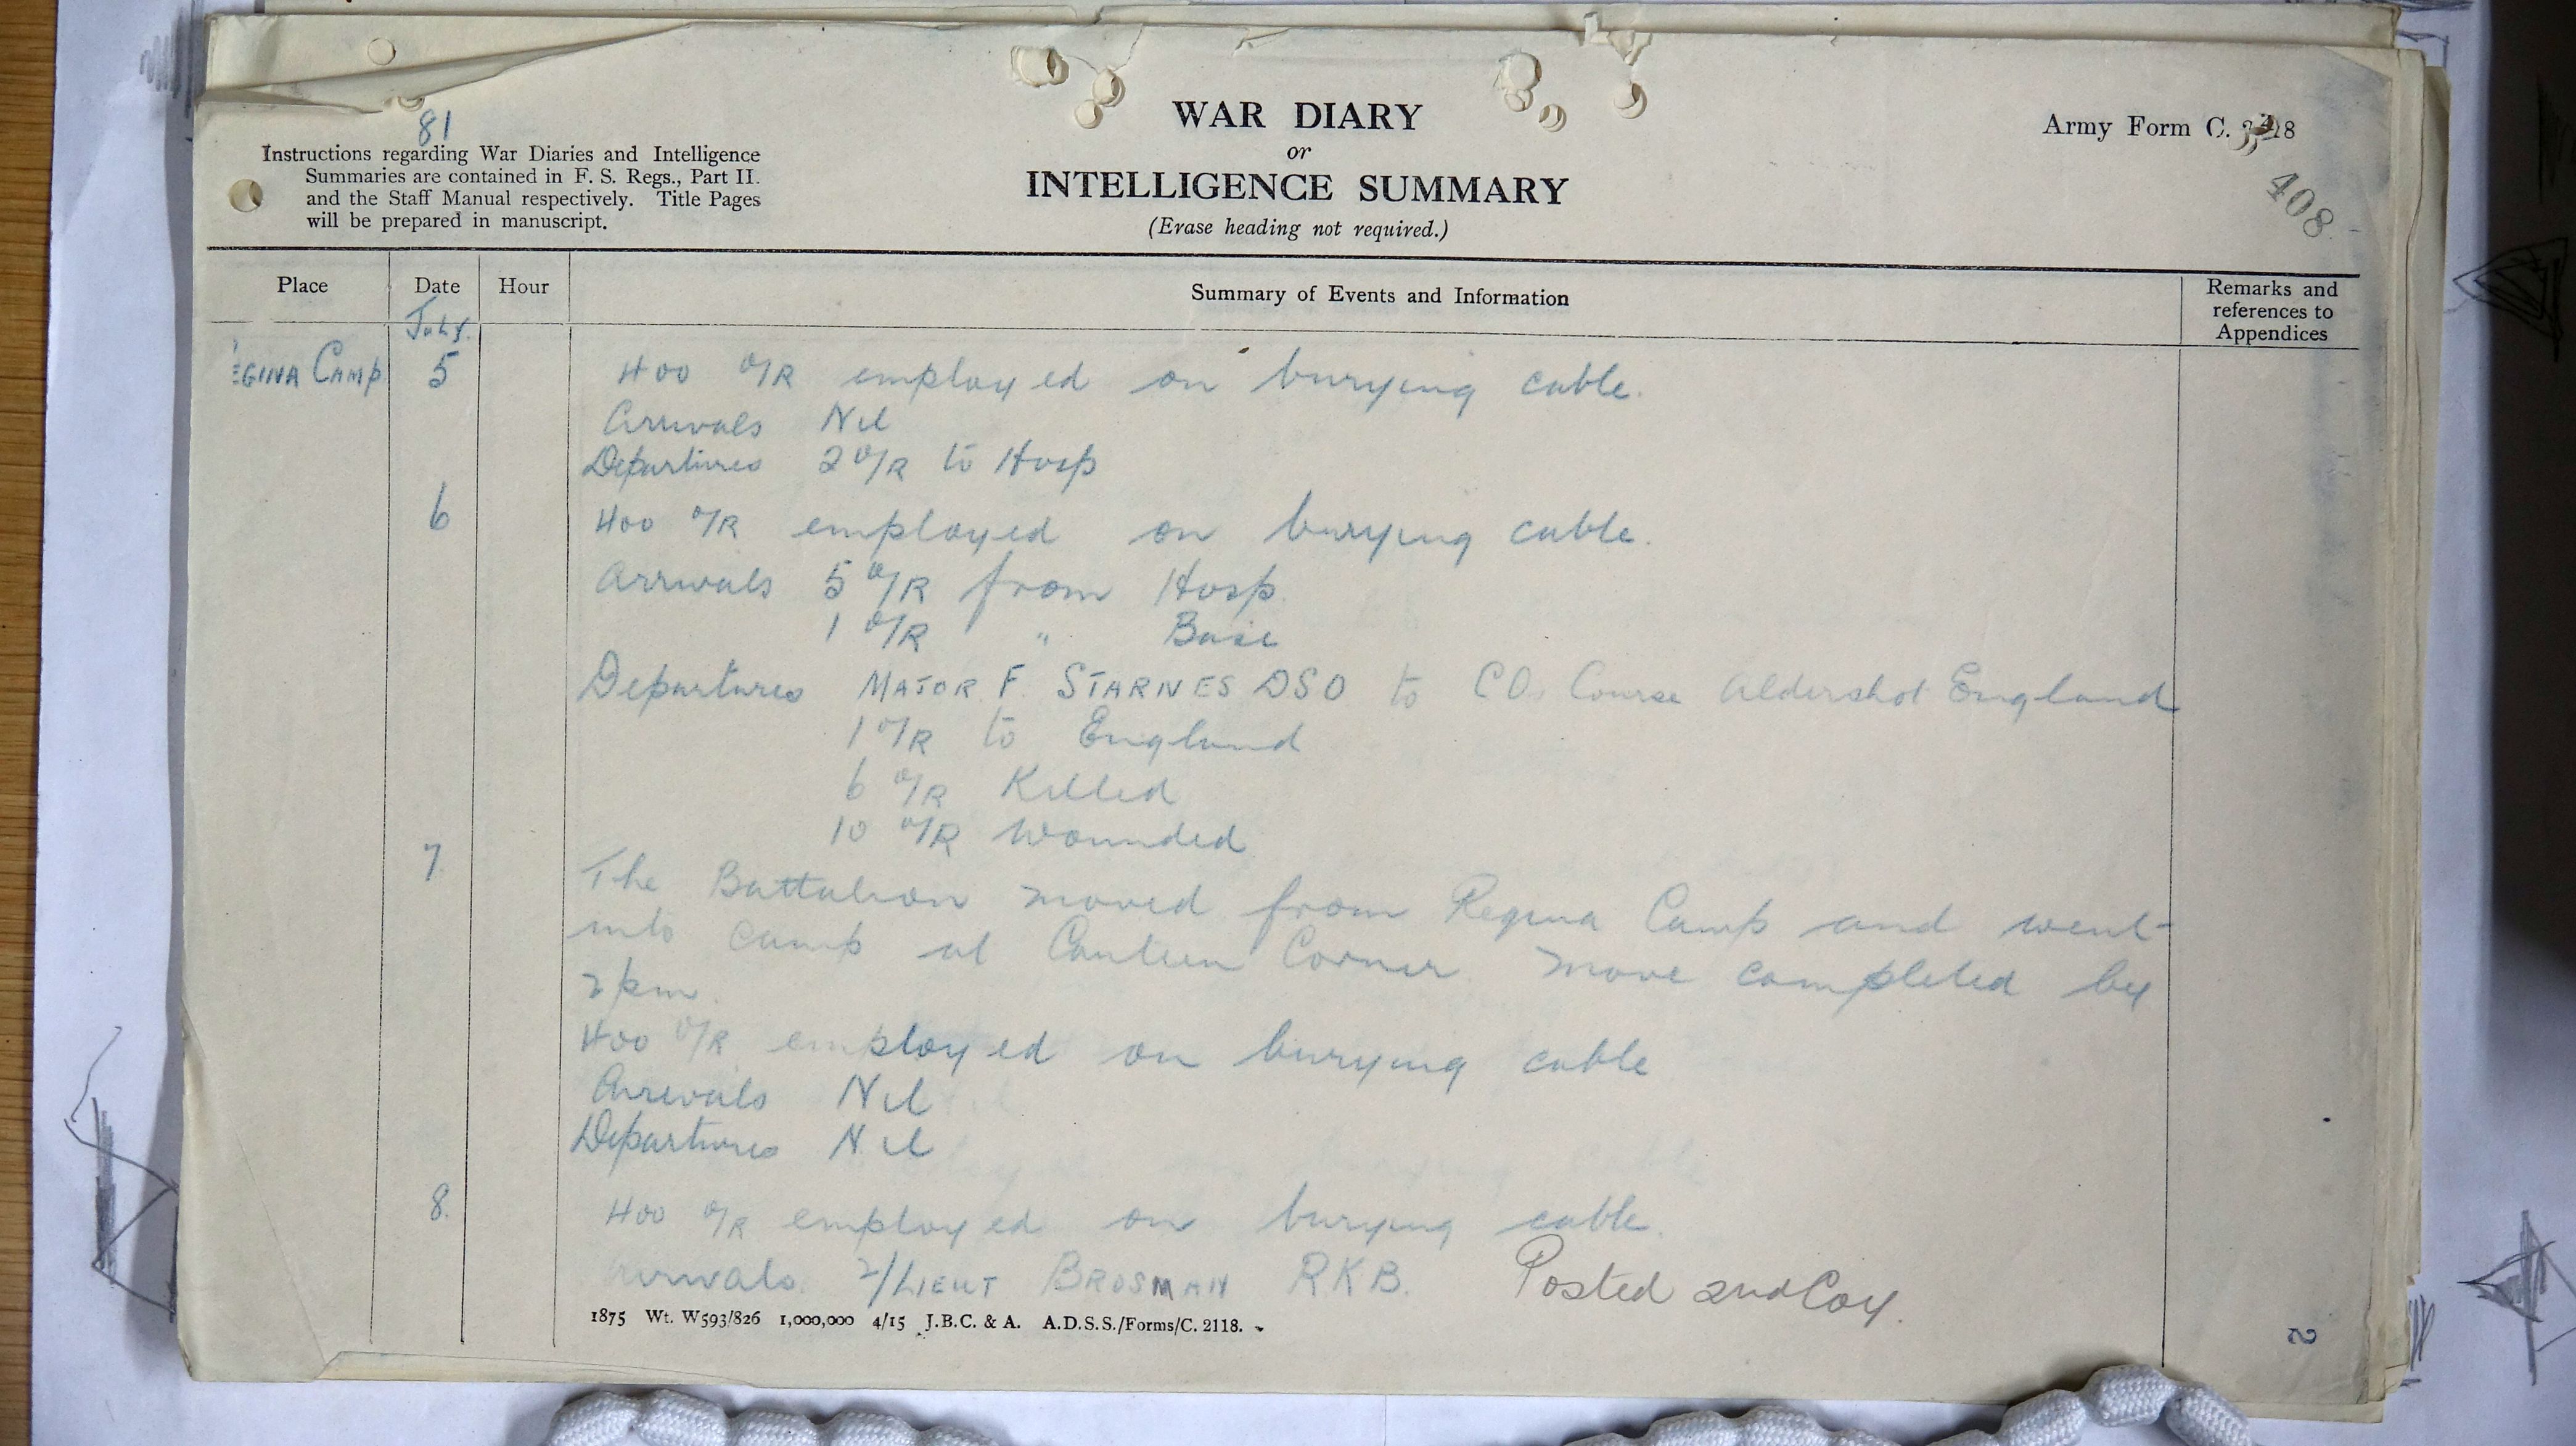 81
Instructions regarding War Diaries and Intelligence
Summaries are contained in F. S. Regs., Part II.
and the Staff Manual respectively. Title Pages
will be prepared in manuscript.
WAR DIARY
or
INTELLIGENCE SUMMARY
(Erase heading not required.)
Army Form C. 2118
408
Place Date Hour Summary of Events and Information Remarks and
references to
Appendices
July
EGINA CAMP 5 400 O/R employed on burying cable.
Arrivals Nil
Departures 2 O/R to Hosp
6 400 O/R employed on burying cable.
Arrivals 5 O/R from Hosp
1 O/R " Base
Departures MAJOR F. STARNES DSO to COs Course Aldershot England
1 O/R to England
6 O/R Killed
10 O/R Wounded
7 The Battalion moved from Regina Camp and went
into camp at Canteen Corner. Move completed by
2 pm.
400 O/R employed on burying cable
Arrivals Nil
Departures Nil
8. 400 O/R employed on burying cable.
Arrivals. 2/LIEUT BROSMAN RKB. Posted 2nd Coy.
1875 Wt. W593/826 1,000,000 4/15 J.B.C. & A. A.D.S.S./Forms/C. 2118.
2